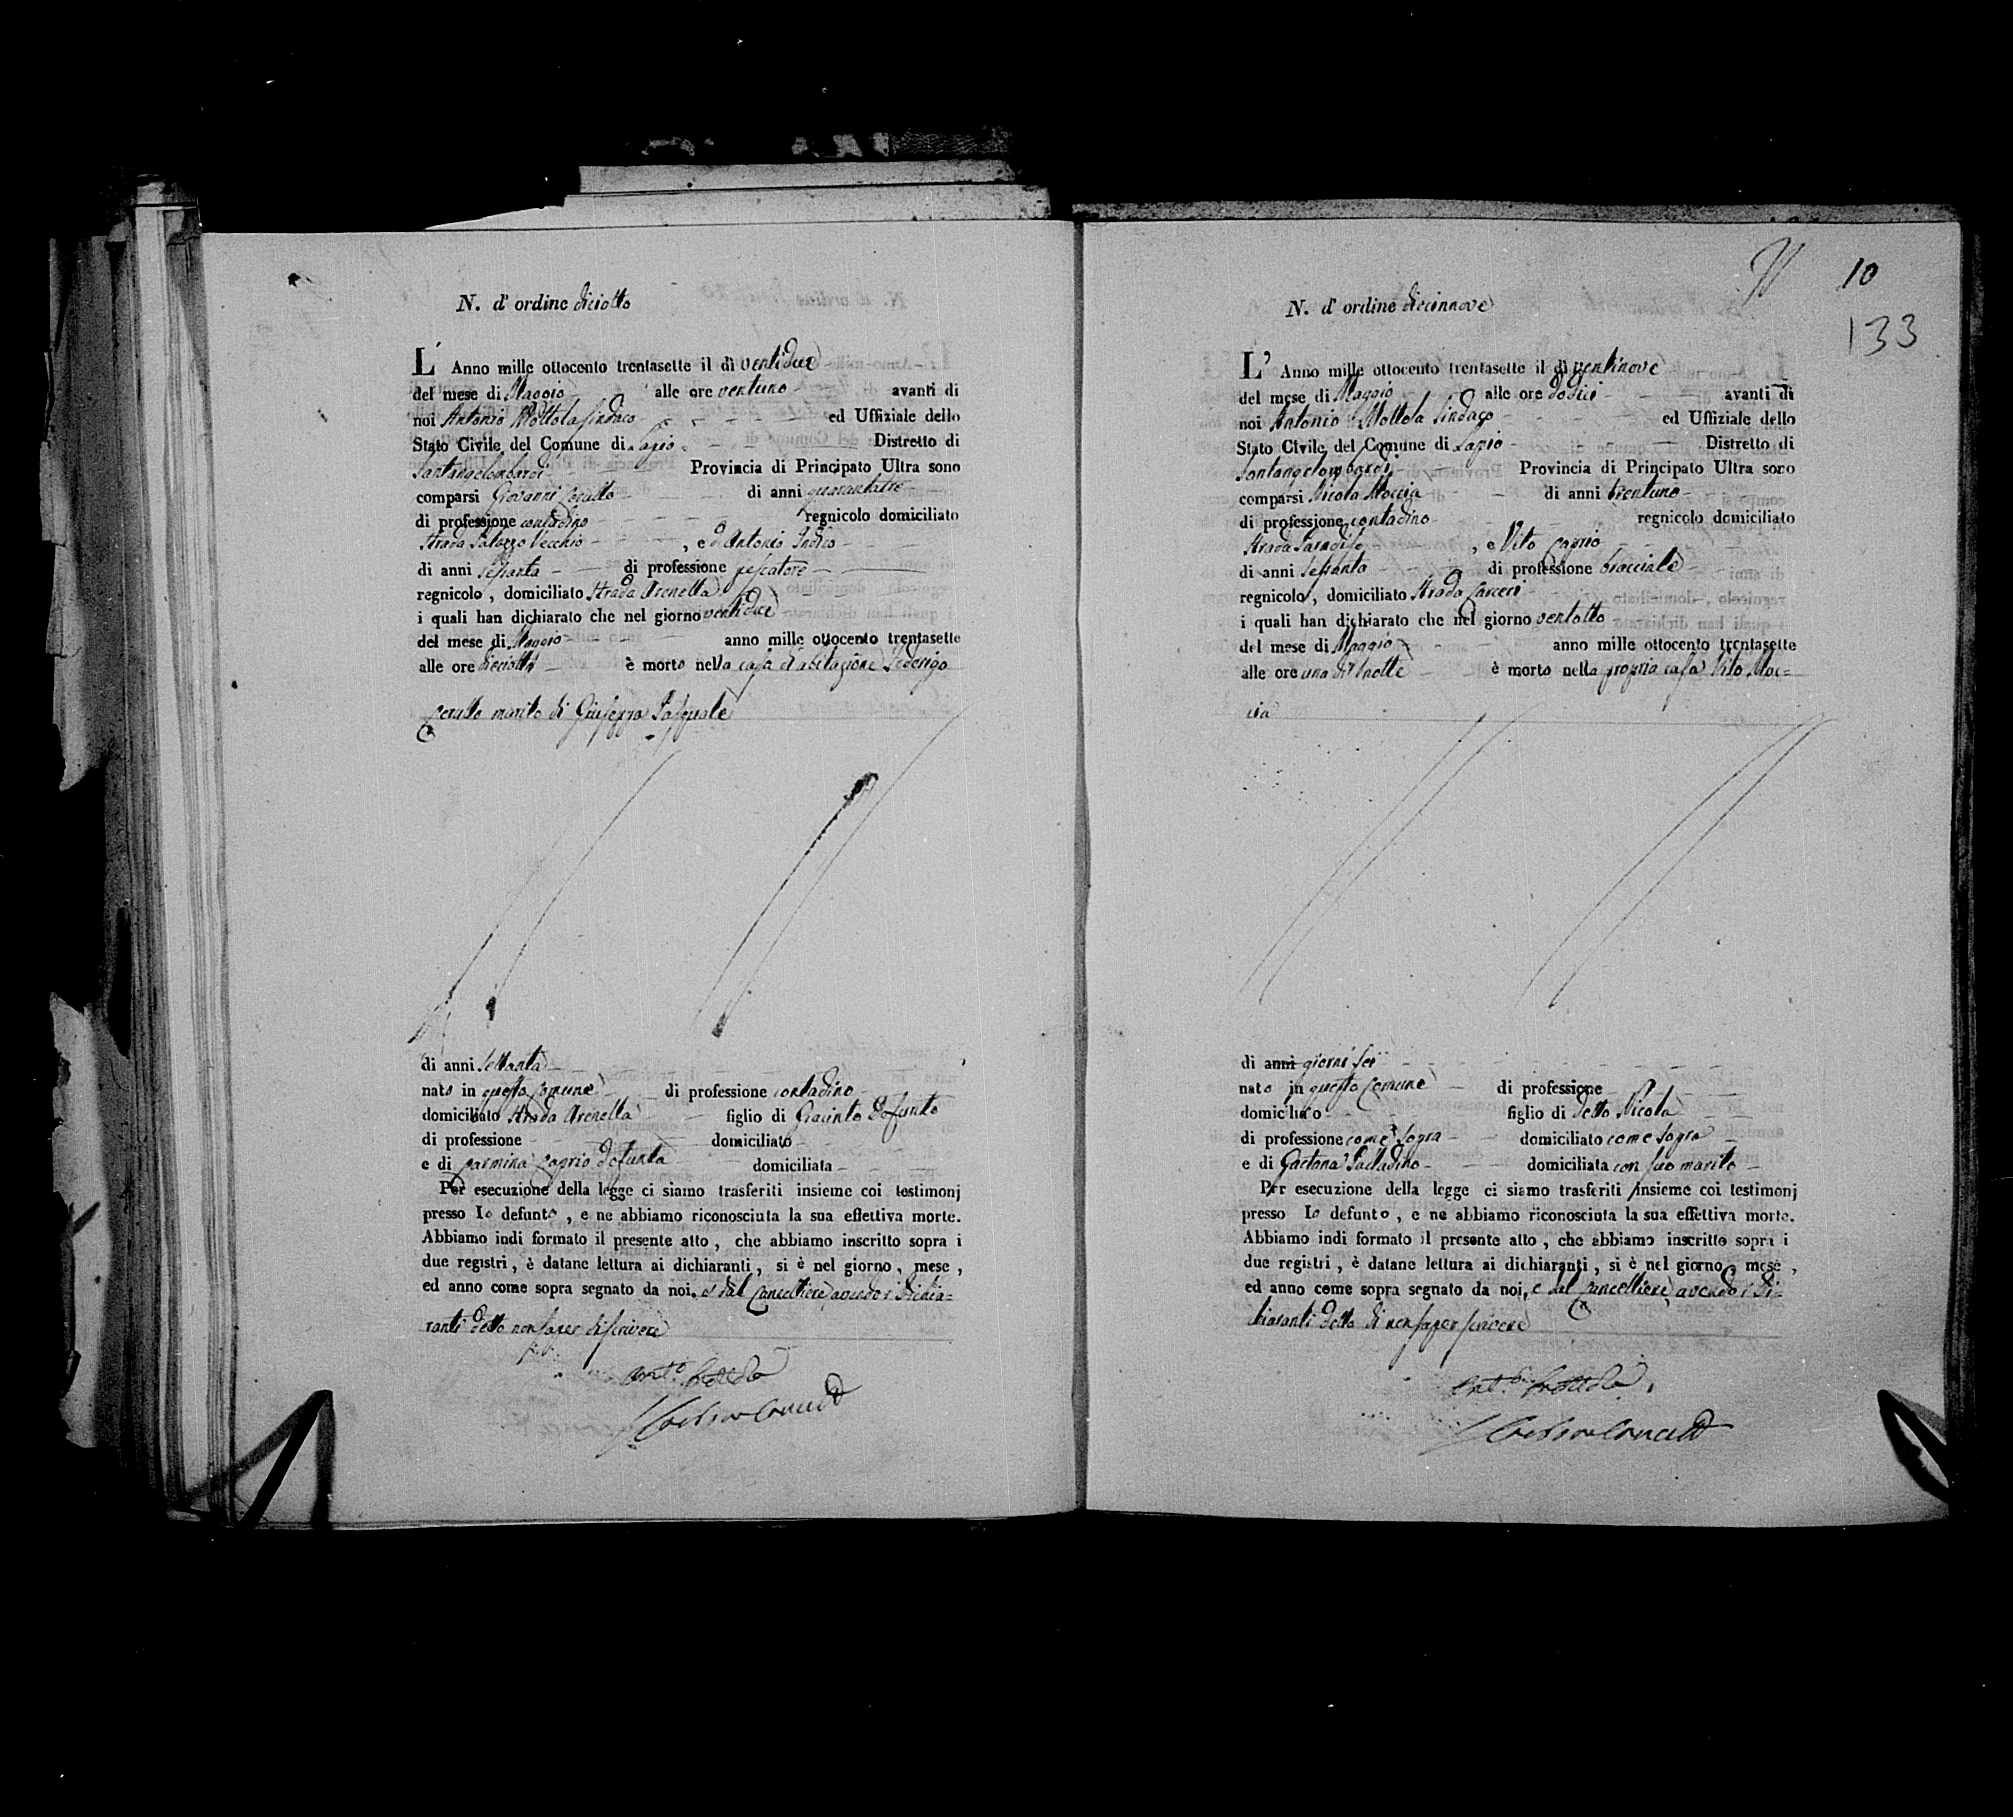 N. d' ordine diciotto
L' Anno mille ottocento trentasette il dì ventidue
del mese di Maggio alle ore ventuno avanti di
noi Antonio Mottola Sindaco ed Uffiziale dello
Stato Civile del Comune di Lapio Distretto di
Santangelombardi Provincia di Principato Ultra sono
comparsi Giovanni Cerullo di anni quarantatre
di professione contadino regnicolo domiciliato
Strada Palazzo Vecchio , e d'Antonio
di anni sessanta di professione pescatore
regnicolo , domiciliato Strada Arenella
i quali han dichiarato che nel giorno ventidue
del mese di Maggio anno mille ottocento trentasette
alle ore diciotto è morto nella casa d'abitazione Federigo
Cerullo marito di Giuseppa Pasquale
di anni settanta
nato in questo Comune di professione contadino
domiciliato Strada Arenella figlio di Giacinto Defunto
di professione domiciliato
e di Carmina Caprio defunta domiciliata
Per esecuzione della legge ci siamo trasferiti insieme coi testimonj
presso lo defunto , e ne abbiamo riconosciuta la sua effettiva morte.
Abbiamo indi formato il presente atto , che abbiamo inscritto sopra i
due registri , è datane lettura ai dichiaranti , si è nel giorno , mese ,
ed anno come sopra segnato da noi, e dal Cancelliere avendo i dichia=
ranti detto non saper di scrivere
Ant.o Mottola
10
133
N. d' ordine diciannove
L' Anno mille ottocento trentasette il dì ventinove
del mese di Maggio alle ore dodici avanti di
noi Antonio Mottola Sindaco ed Uffiziale dello
Stato Civile del Comune di Lapio Distretto di
Santangelombardi Provincia di Principato Ultra sono
comparsi Nicola Moccia di anni trentuno
di professione contadino regnicolo domiciliato
Strada Paradiso , e Vito Caprio
di anni sessanta di professione bracciale
regnicolo , domiciliato Strada Carceri
i quali han dichiarato che nel giorno ventotto
del mese di Maggio anno mille ottocento trentasette
alle ore una di notte è morto nella propria casa Vito Moc=
cia
di anni giorni sei
nato in questo Comune di professione
domiciliato figlio di detto Nicola
di professione come sopra domiciliato come sopra
e di Gaetana Palladino domiciliata con suo marito
Per esecuzione della legge ci siamo trasferiti insieme coi testimonj
presso lo defunto , e ne abbiamo riconosciuta la sua effettiva morte.
Abbiamo indi formato il presente atto , che abbiamo inscritto sopra i
due registri , è datane lettura ai dichiaranti , si è nel giorno , mese ,
ed anno come sopra segnato da noi, e dal Cancelliere avendo i di=
chiaranti detto di non saper scrivere
Ant.o Mottola